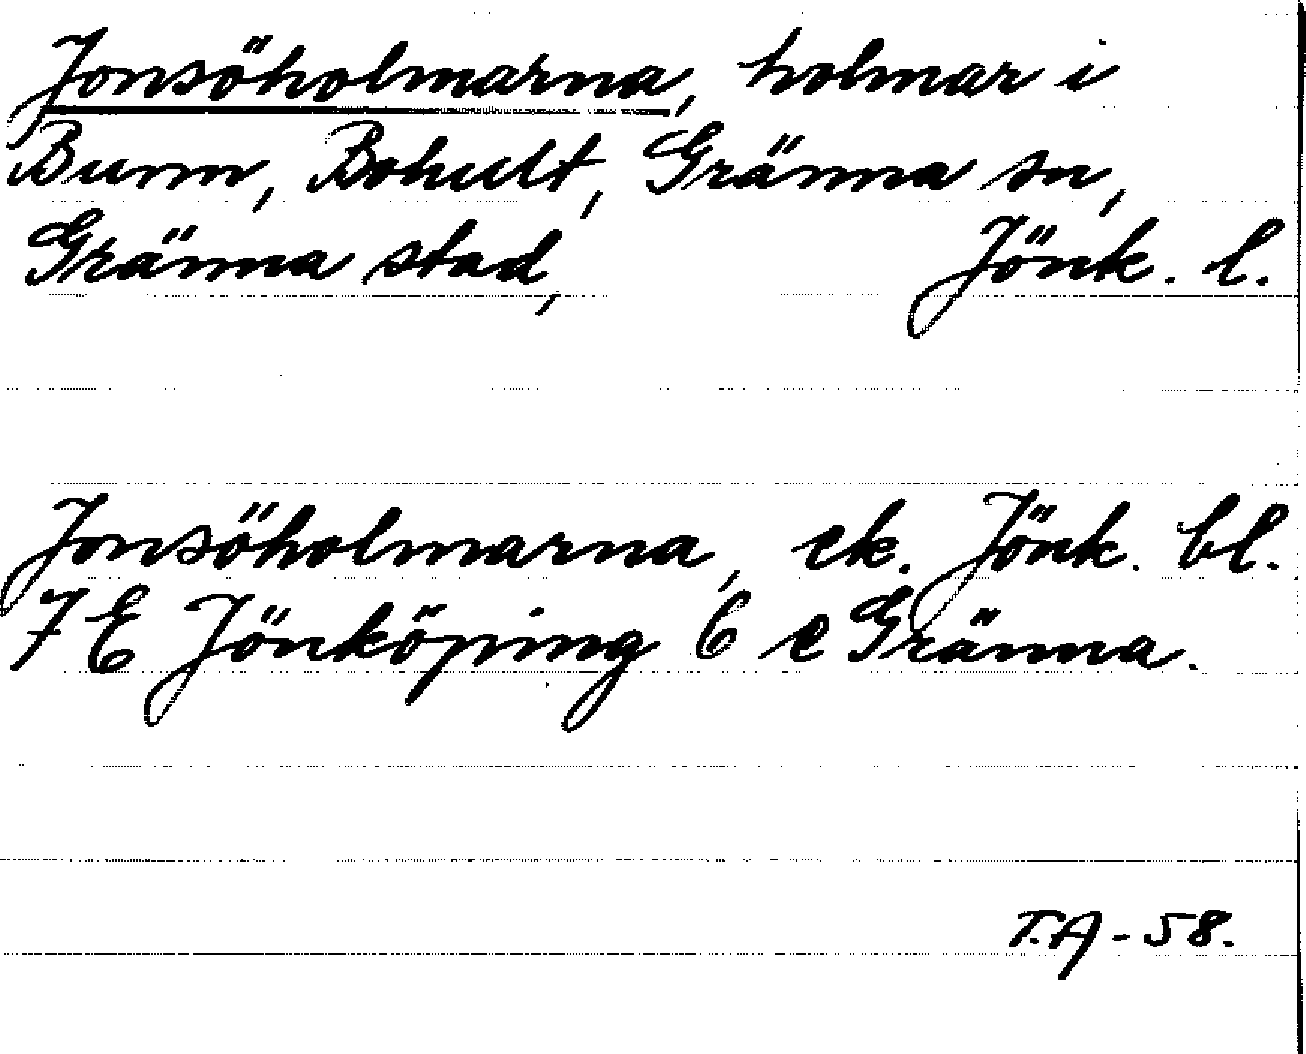 Jonsöholmarna, holmar i
Bunn, Bohult, Gränna sn,
Gränna stad, Jönk. l.
Jonsöholmarna, ek. Jönk. bl.
7 E Jönköping 6 e Gränna.
T.A-58.